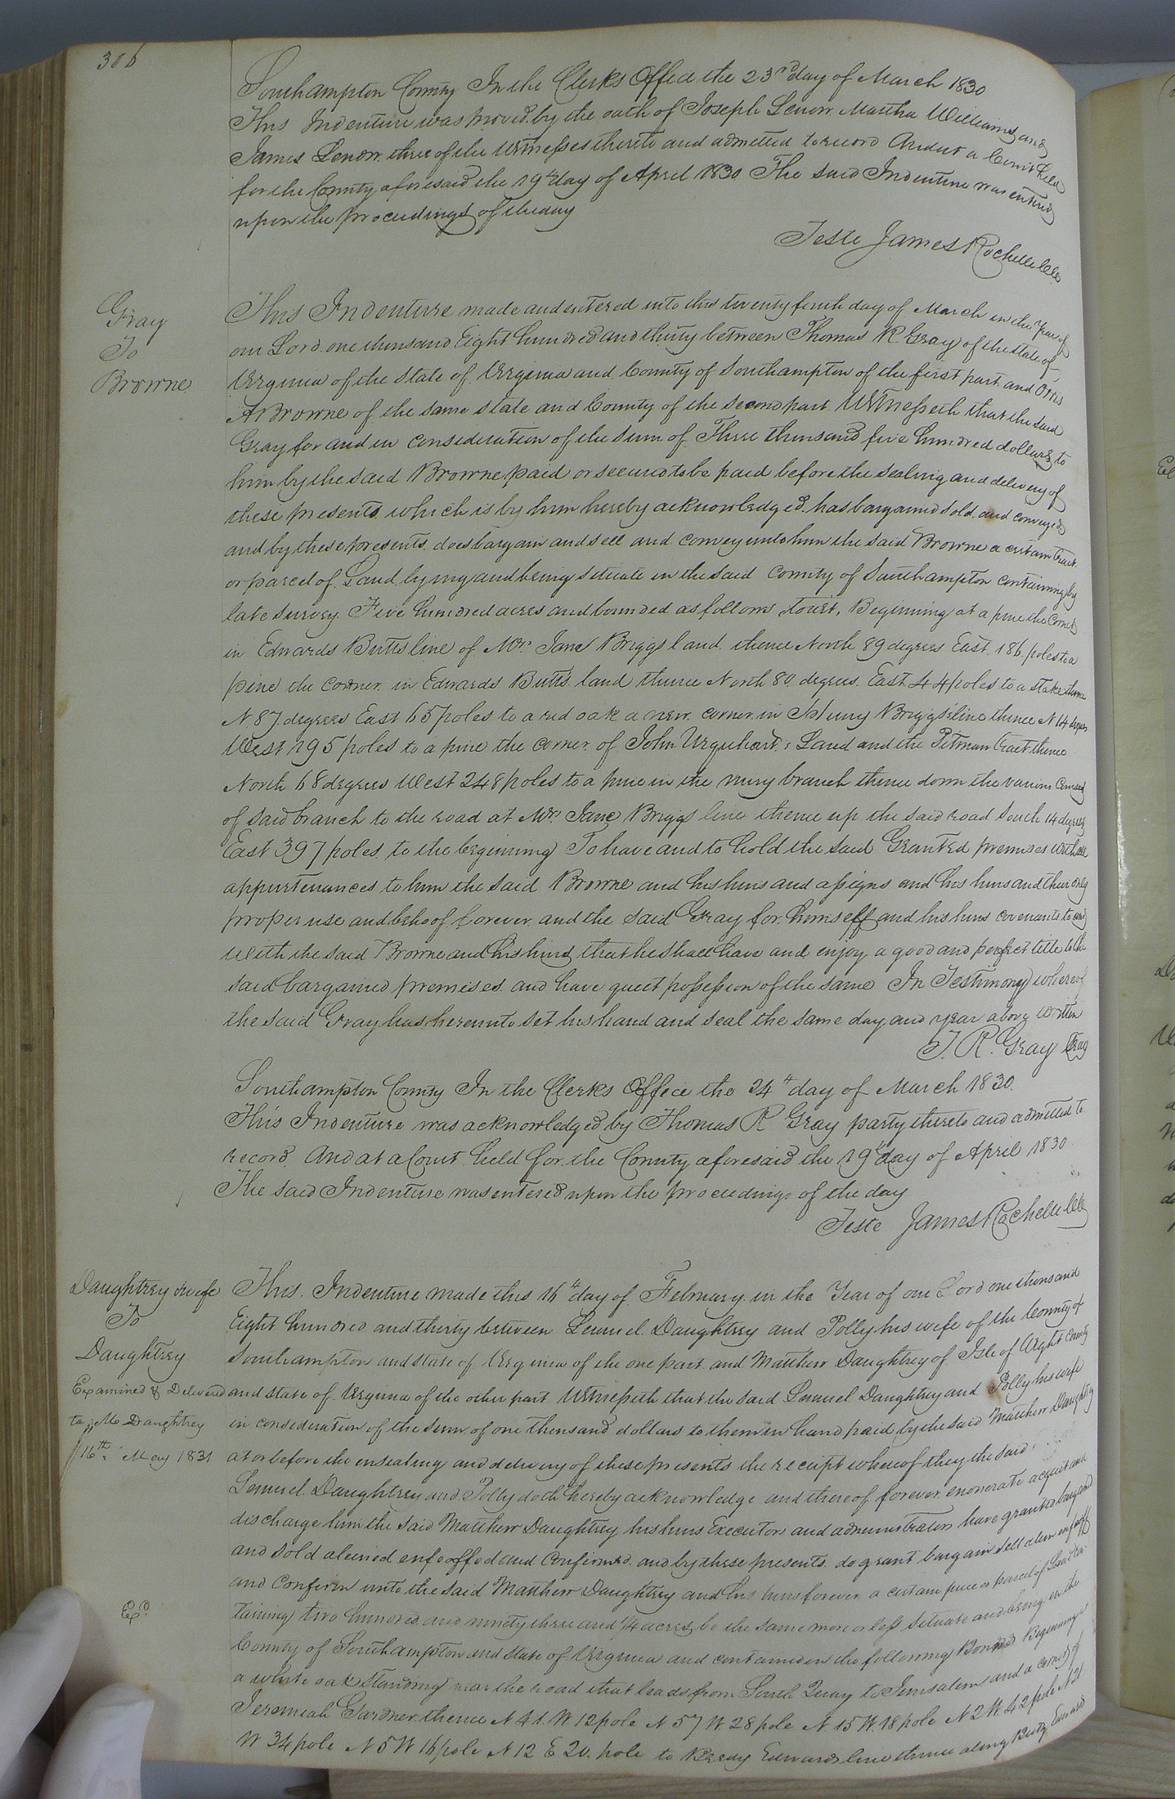 306
Southampton County In the Clerks Office the 23rd day of March 1830
This Indenture was proved by the oath of Joseph Lenow Martha Williams and
James Lenow three of the Witnesses thereto and admitted to record And at a Court held
for the County aforesaid the 19th day of April 1830 The said Indenture was entered
upon the proceedings of the day
Teste James Rochelle Clk
Gray
To
Browne
This Indenture made and entered into this twenty fourth day of March in the Year of
our Lord one thousand Eight hundred and thirty between Thomas R Gray of the state of
Virginia of the State of Virginia and County of Southampton of the first part and Orris
A Browne of the same state and County of the second part Witnesseth that the said
Gray for and in consideration of the sum of Three thousand five hundred dollars to
him by the said Browne paid or secured to be paid before the sealing and delivery of
these presents which is by him hereby acknowledged, has bargained sold and conveyed
and by these presents does bargain and sell and convey unto him the said Browne a certain tract
or parcel of Land lying and being situate in the said County of Southampton containing by
late survey Five hundred acres and bounded as follows to wit, Beginning at a pine the Corner
in Edwards Butts line of Mrs Jane Briggs land thence North 89 degrees East 186 poles to a
pine the corner in Edwards Butts land thence North 80 degrees East 44 poles to a stake thence
N 87 degrees East 65 poles to a red oak a new corner in Henry Briggs line thence N 14 degrees
West 195 poles to a pine the corner of John Urquhart's Land and the Pitman tract thence
North 68 degrees West 248 poles to a pine in the miry branch thence down the various courses
of said branch to the road at Mrs Jane Briggs line thence up the said road South 14 degrees
East 397 poles to the beginning To have and to hold the said Granted premises with all
appurtenances to him the said Browne and his heirs and assigns and his heirs and their only
proper use and behoof forever and the said Gray for himself and his heirs covenants to and
with the said Browne and his heirs that he shall have and enjoy a good and perfect title to the
said bargained premises and have quiet possession of the same In Testimony whereof
the said Gray has hereunto set his hand and seal the same day and year above written
T. R. Gray Seal
Southampton County In the Clerks Office the 24th day of March 1830.
This Indenture was acknowledged by Thomas R Gray party thereto and admitted to
record And at a Court held for the County aforesaid the 19th day of April 1830
The said Indenture was entered upon the proceedings of the day
Teste James Rochelle Clk
Daughtrey & wife
To
Daughtrey
Examined & Delivered
to Mo Daughtrey
16th May 1831
This Indenture made this 16th day of February in the Year of our Lord one thousand
Eight hundred and thirty between Lemuel Daughtrey and Polly his wife of the County of
Southampton and state of Virginia of the one part and Matthew Daughtrey of Isle of Wight County
and state of Virginia of the other part Witnesseth that the said Lemuel Daughtrey and Polly his wife
in consideration of the sum of one thousand dollars to them in hand paid by the said Matthew Daughtrey
at or before the ensealing and delivery of these presents the receipt whereof they the said
Lemuel Daughtrey and Polly doth hereby acknowledge and thereof forever exonerate acquit and
discharge him the said Matthew Daughtrey his heirs Executors and administrators have granted bargained
and sold aliened enfeoffed and Confirmed and by these presents do grant bargain sell alien enfeoff
and Confirm unto the said Matthew Daughtrey and his heirs forever a certain piece or parcel of Land con-
Exd
taining two hundred and ninety three and 1/4 acres be the same more or less situate and being in the
County of Southampton and state of Virginia and contained in the following Bounds Beginning at
a white oak standing near the road that leads from South Quay to Jerusalem and a corner of
Jeremiah Gardner thence N 41 W 12 pole N 57 W 28 pole N 15 W 18 pole N 2 W 42 pole N 21
W 34 pole N 5 W 16 pole N 12 E 20 pole to Edwards line thence along Edwards